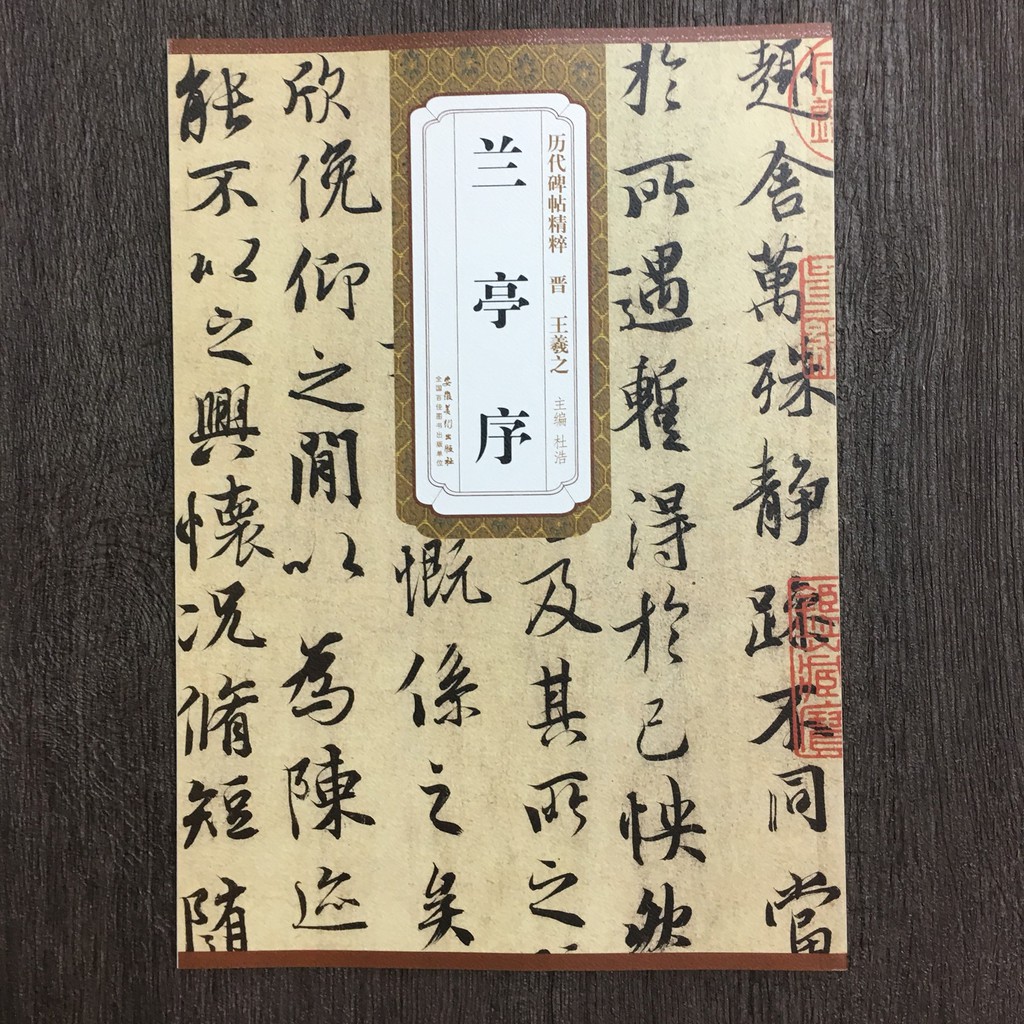 趣舍萬殊静躁不同當
於所遇暫得於己怏然
及其所之
慨係之矣
欣俛仰之閒以為陳迹
能不以之興懷况脩短随
历代碑帖精粹 晋 王羲之 主编 杜浩
兰亭序
安徽美术出版社
全国百佳图书出版单位